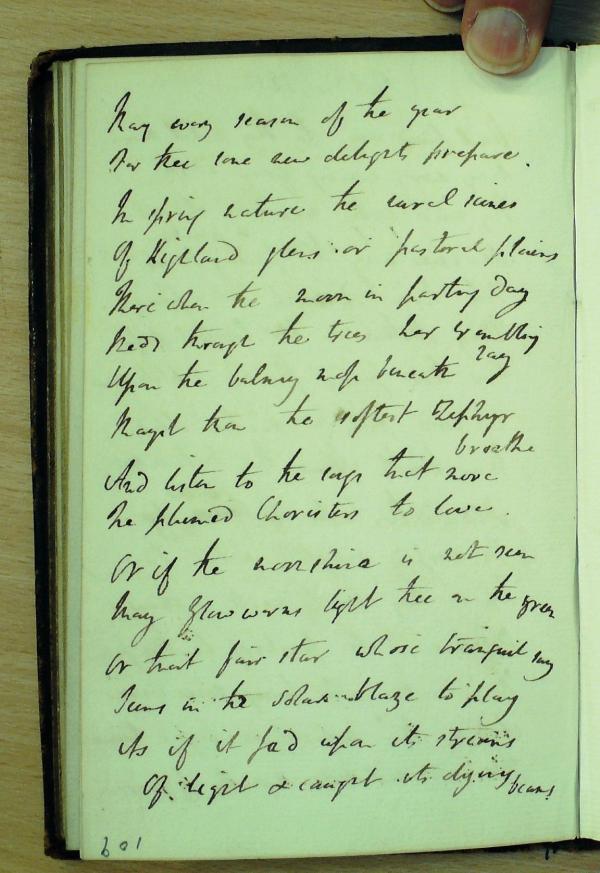 May every season of the year
For thee some new delights prepare.
In spring nature the rural scenes
Of Highland glens or pastoral plains
There when the moon in parting day
Sheds through the trees her trembling ray
Upon the balmy moss beneath
Mayst thou the softest Zephyr breathe
And listen to the songs that move
The plumed Choristers to love.
Or if the moonshine is not seen
May glow worms light thee on the green
Or that fair star whose tranquil ray
Seems in the solar blaze to play
As if it fed upon its streams
Of light & caught its dying beams
601